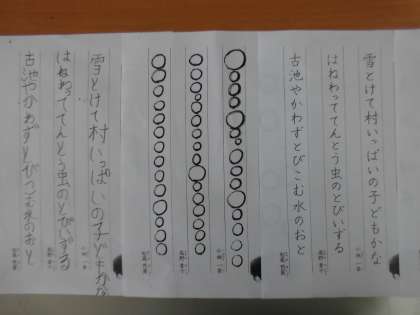 雪とけて村いっぱいの子どもかな
小林 一茶
はねわっててんとう虫のとびいずる
古池やかわずとびこむ水のおと
小林 一茶
雪とけて村いっぱいの子どもかな
はねわっててんとう虫のとびいずる
古池やかわずとびこむ水のおと